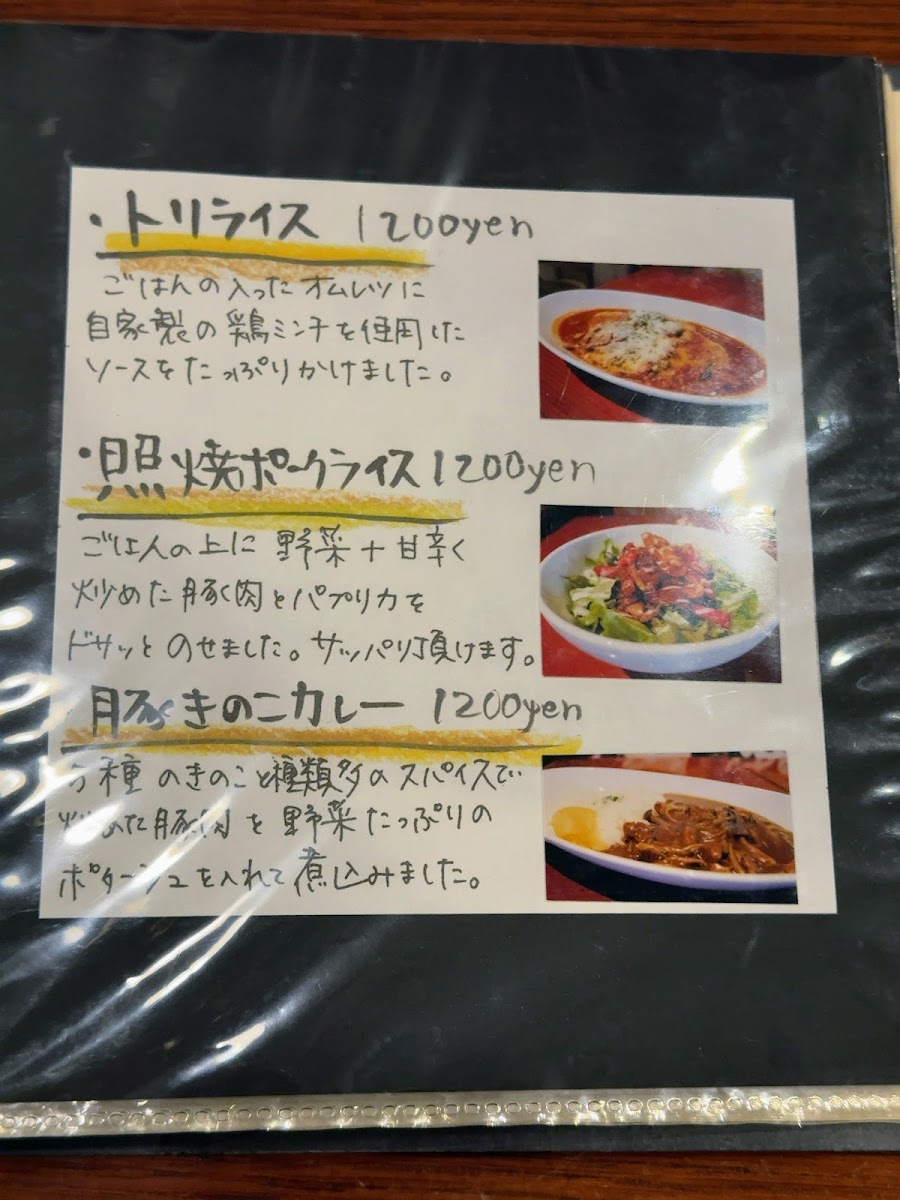 ・トリライス 1200yen
ごはんの入ったオムレツに
自家製の鶏ミンチを使用した
ソースをたっぷりかけました。
・照焼ポークライス 1200yen
ごはんの上に 野菜+甘辛く
炒めた豚肉とパプリカを
ドサッと のせました。サッパリ頂けます。
豚きのこカレー 1200yen
種 のきのこと種類多のスパイスで
炒めた豚肉を 野菜たっぷりの
ポタージュを入れて煮込みました。